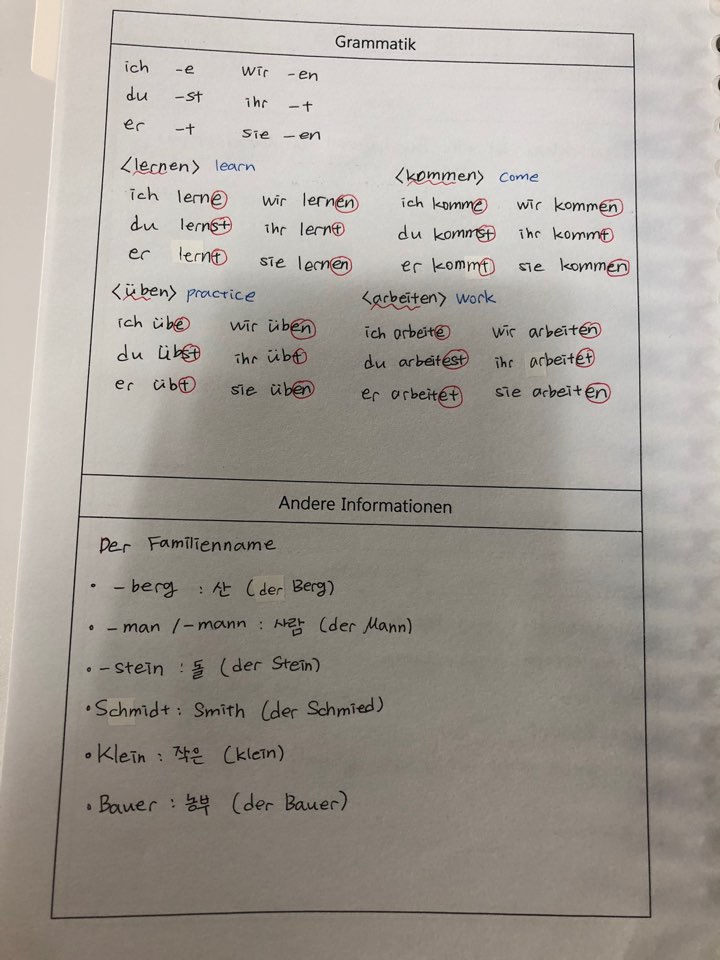 Grammatik
ich -e wir -en
du -st ihr -t
er -t sie -en
<lernen> learn
ich lerne wir lernen
du lernst ihr lernt
er lernt sie lernen
<kommen> come
ich komme wir kommen
du kommst ihr kommt
er kommt sie kommen
<üben> practice
ich übe wir üben
du übst ihr übt
er übt sie üben
<arbeiten> work
ich arbeite wir arbeiten
du arbeitest ihr arbeitet
er arbeitet sie arbeiten
Andere Informationen
Der Familienname
• -berg : 산 (der Berg)
• -man /-mann : 사람 (der Mann)
• -stein : 돌 (der Stein)
• Schmidt : Smith (der Schmied)
• Klein : 작은 (klein)
• Bauer : 농부 (der Bauer)